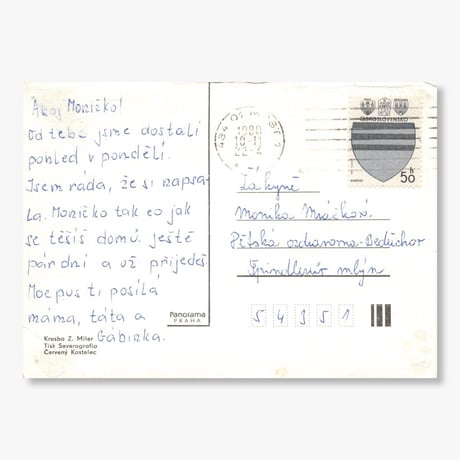 Ahoj Moničko!
Od tebe jsme dostali
pohled v pondělí.
Jsem ráda, že si napsa-
la. Moničko tak co jak
se těšíš domů. Ještě
pár dní a už přijedeš.
Moc pus ti posílá
máma, táta a
Gábinka.
Kresba Z. Miler
Tisk Severografia
Červený Kostelec
Panorama
PRAHA
434 01 MOST 1
ČESKOSLOVENSKO
50 h
Žákyně
Monika Mráčková
Dětská ozdravovna-Bedřichov
Špindlerův mlýn
54351